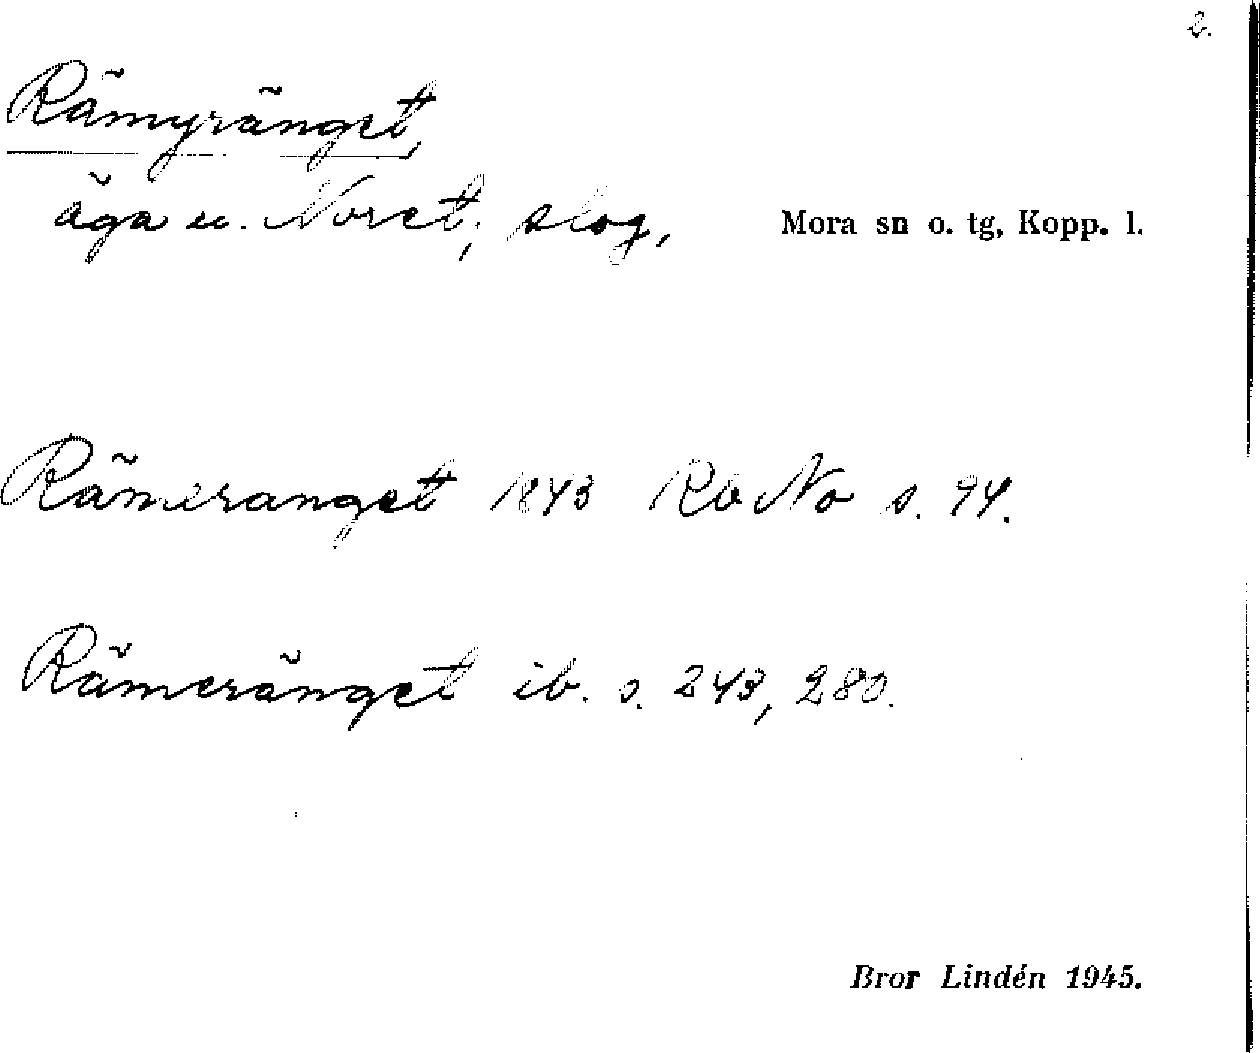 2.
Rämyränget,
äga u. Noret; slog, Mora sn o. tg, Kopp. l.
Rämeranget 1843 Rb No s. 94.
Rämeränget ib. s. 243, 280.
Bror Lindén 1945.